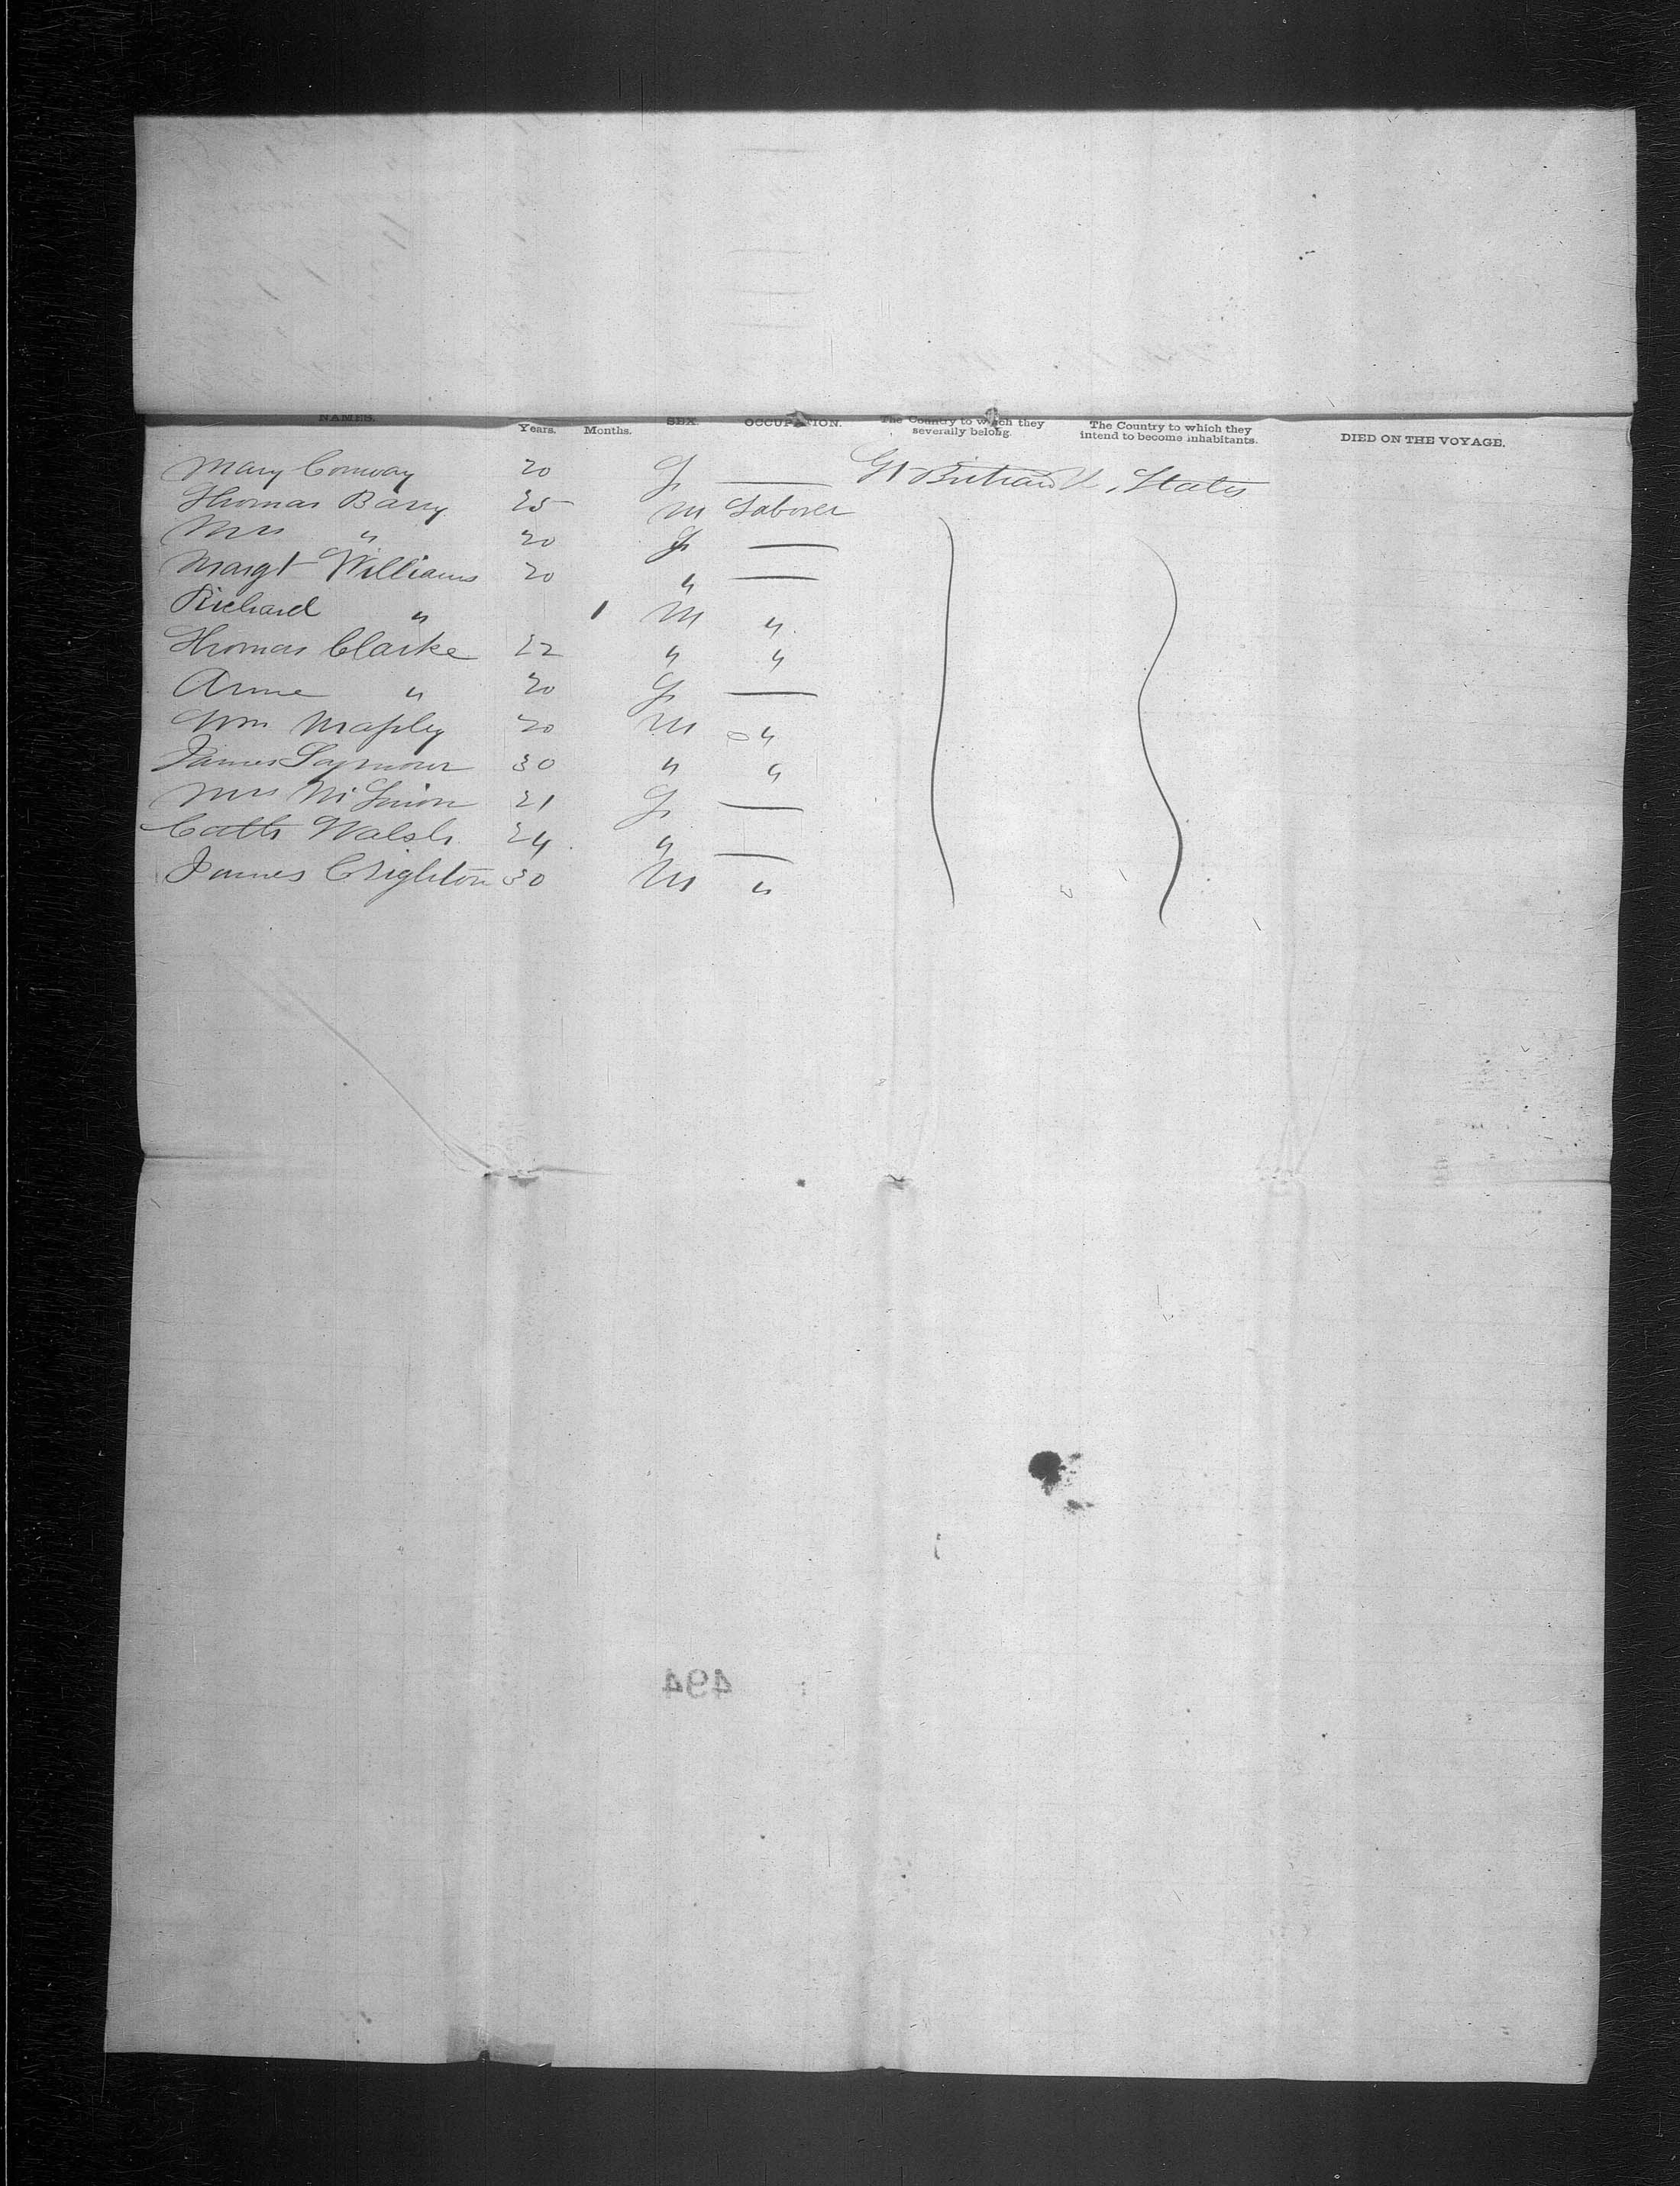 NAMES. Years. Months. SEX. OCCUPATION. The Country to which they severally belong. The Country to which they intend to become inhabitants. DIED ON THE VOYAGE.
Mary Conway 20 f — Gt Britain U. States
Thomas Barry 25 m Laborer
Mrs " 20 f —
Margt Williams 20 " —
Richard " 1 m "
Thomas Clarke 22 " "
Anne " 20 f —
Wm 20 m "
James Seymour 30 " "
Mrs 21 f —
Cath Walsh 24 " —
James Crighton 30 m "
494